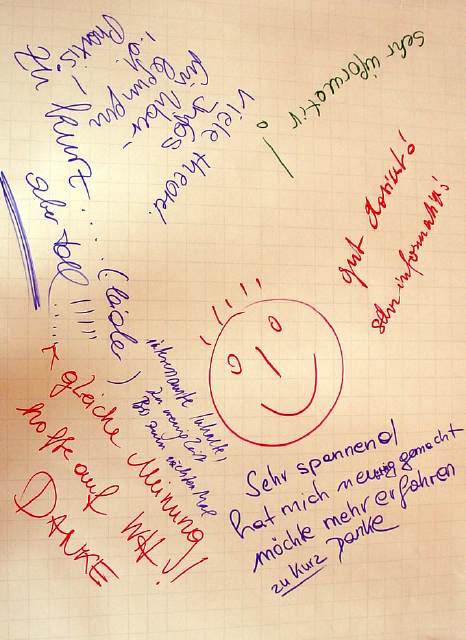 Sehr informativ!
Viele theoret.
Infos
für
Praxis-
Zu kurz.....(leider)
aber toll.....!!!!!
gut doziert!
sehr informativ!
interessante Inhalte,
zu wenig Zeit
Bis zum nächsten Mal
← gleiche Meinung
hoffe auf WH!!
DANKE
Sehr spannend
hat mich neugierig gemacht
möchte mehr erfahren
zu kurz Danke